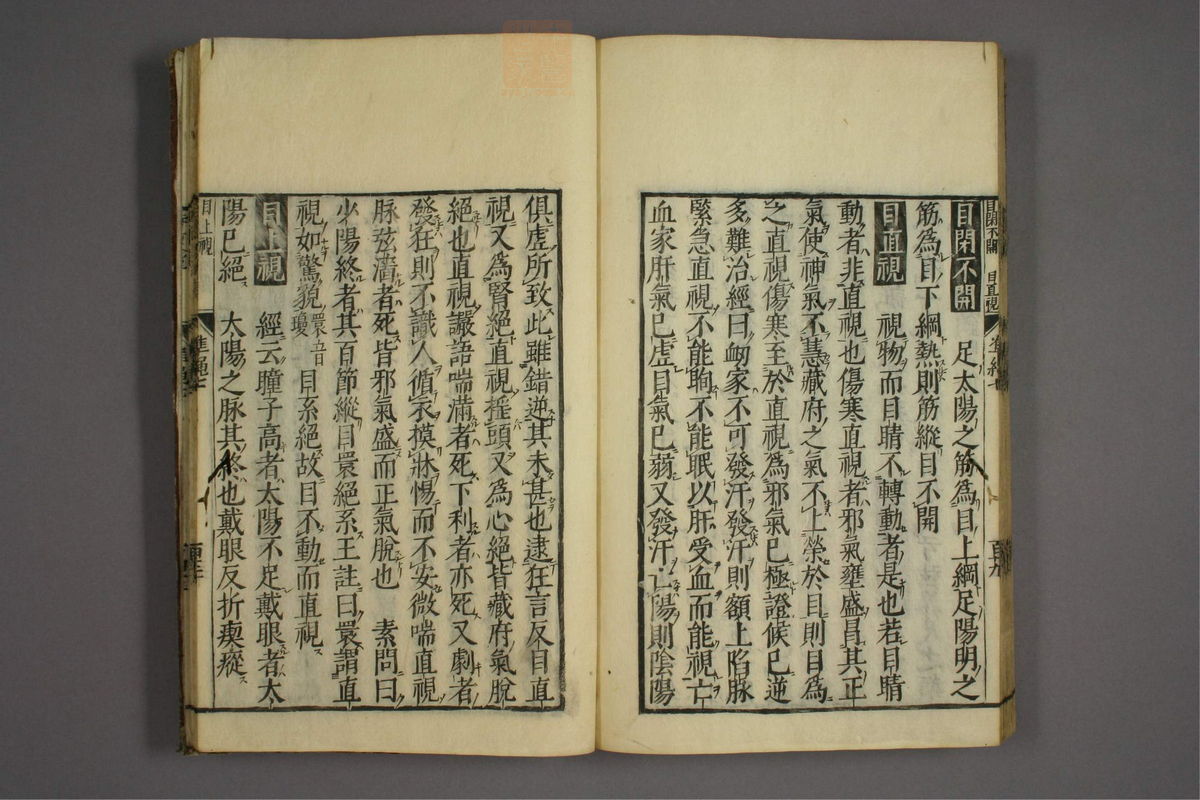 目閉不開　足太陽之筋為目上綱足陽明之
筋為目下綱熱則筋縱目不開
目直視　視物而目睛不轉動者是也若目睛
動者非直視也傷寒直視者邪氣壅盛冒其正
氣使神氣不慧藏府之氣不上榮於目則目為
之直視傷寒至於直視為邪氣已極證候已逆
多難治經曰衂家不可發汗發汗則額上陷脉
緊急直視不能眴不能眠以肝受血而能視亡
血家肝氣已虛目氣已弱又發汗亡陽則陰陽
俱虛所致此雖錯逆其未甚也逮狂言反目直
視又為腎絕直視搖頭又為心絕皆藏府氣脫
絕也直視讝語喘滿者死下利者亦死又劇者
發狂則不識人循衣摸牀惕而不安微喘直視
脉弦濇者死皆邪氣盛而正氣脫也　素問曰
少陽終者其百節縱目睘絕系王註曰睘謂直
視如驚貌睘音瓊目系絕故目不動而直視
目上視　經云瞳子高者太陽不足戴眼者太
陽已絕　太陽之脉其終也戴眼反折瘈瘲
目上視